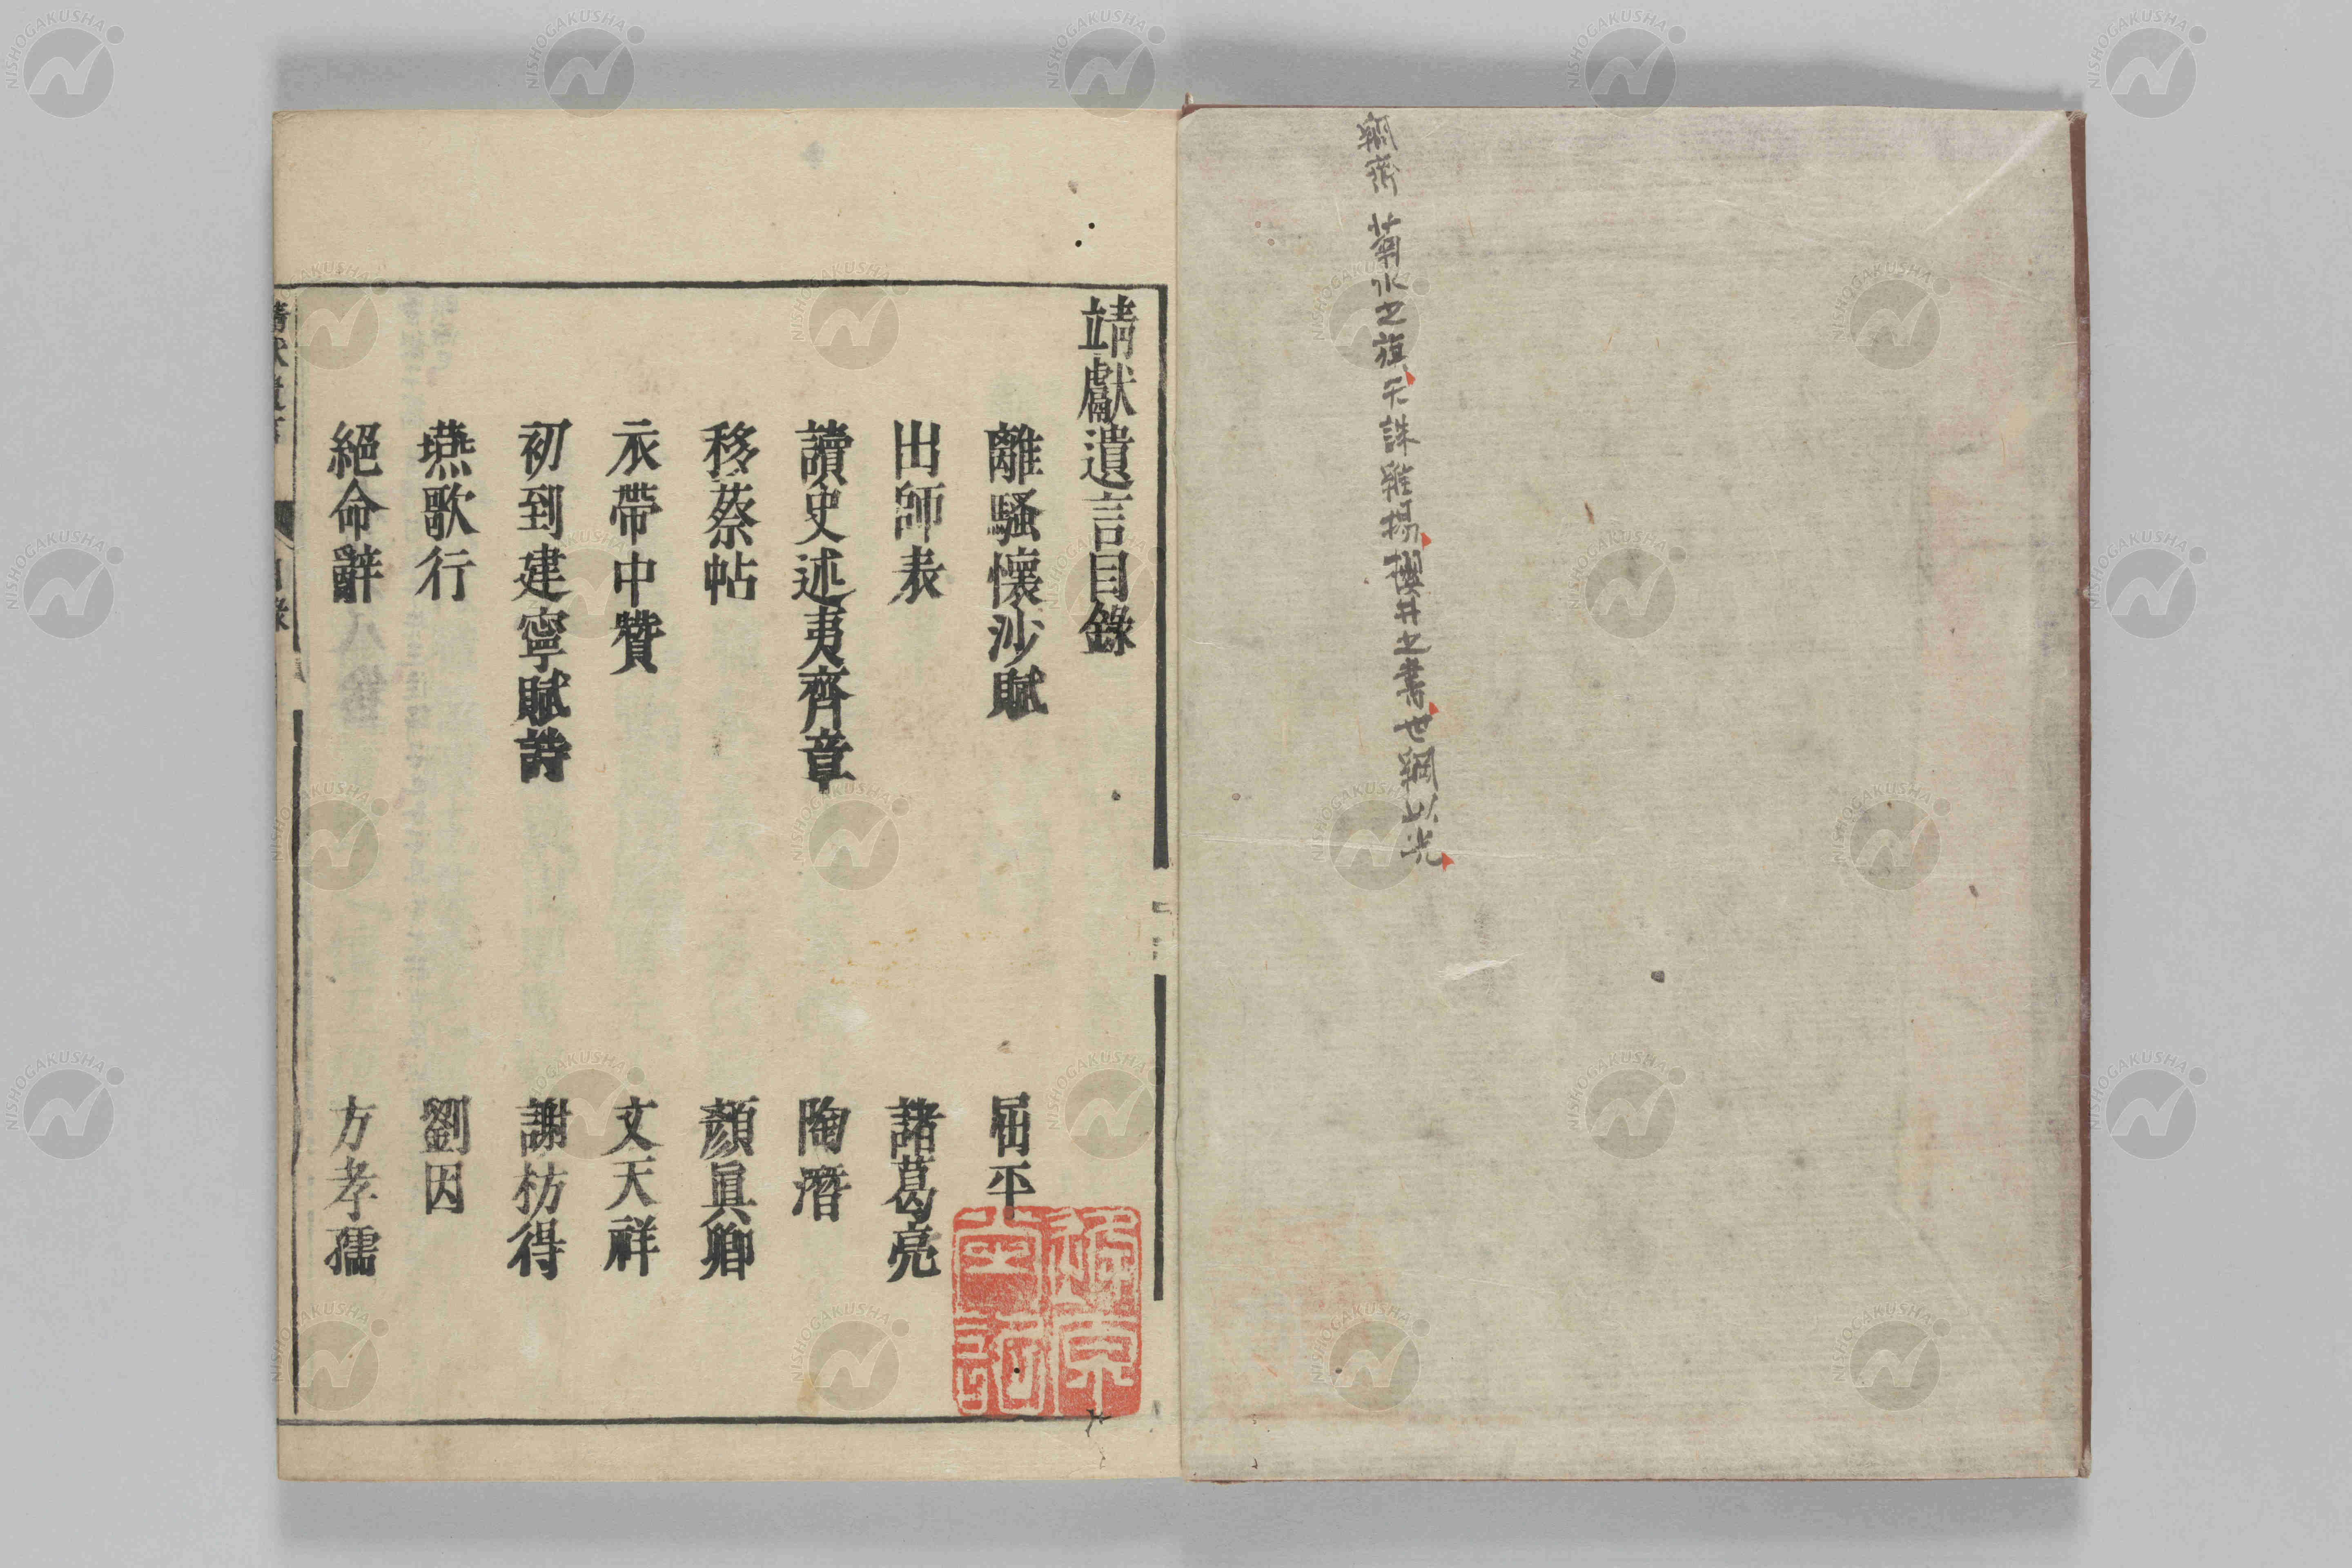 絅齋 菊水之旗天誅雖揚櫻井之書世綱以光
靖獻遺言目錄
離騷懷沙賦 屈平
出師表 諸葛亮
讀史述夷齊章 陶潛
移蔡帖 顏眞卿
衣帶中贊 文天祥
初到建寧賦詩 謝枋得
燕歌行 劉因
絕命辭 方孝孺
NISHOGAKUSHA